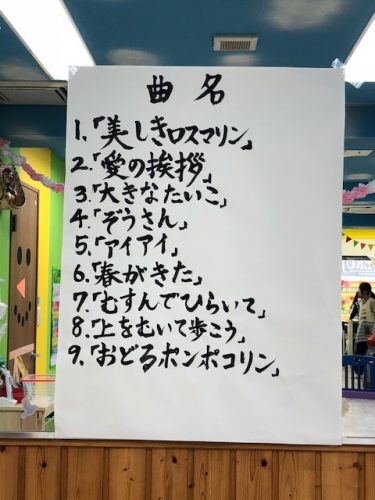 曲名
1.「美しきロスマリン」
2.「愛の挨拶」
3.「大きなたいこ」
4.「ぞうさん」
5.「アイアイ」
6.「春がきた」
7.「むすんでひらいて」
8.「上をむいて歩こう」
9.「おどるポンポコリン」